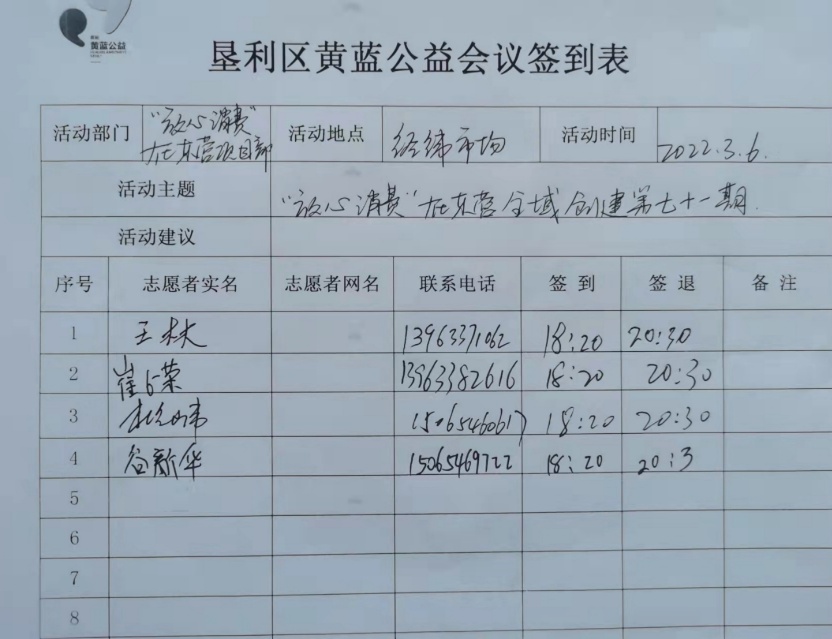 黄蓝公益
垦利区黄蓝公益会议签到表
活动部门 "放心消费" 活动地点 经纬市场 活动时间 2022.3.6.
在东营项目部
活动主题 "放心消费"在东营全域创建第七十一期.
活动建议
序号 志愿者实名 志愿者网名 联系电话 签到 签退 备注
1 王林 13963371062 18:20 20:30
2 崔 荣 13963382616 18:20 20:30
3 15065460617 18:20 20:30
4 谷新华 15065469722 18:20 20:3
5
6
7
8